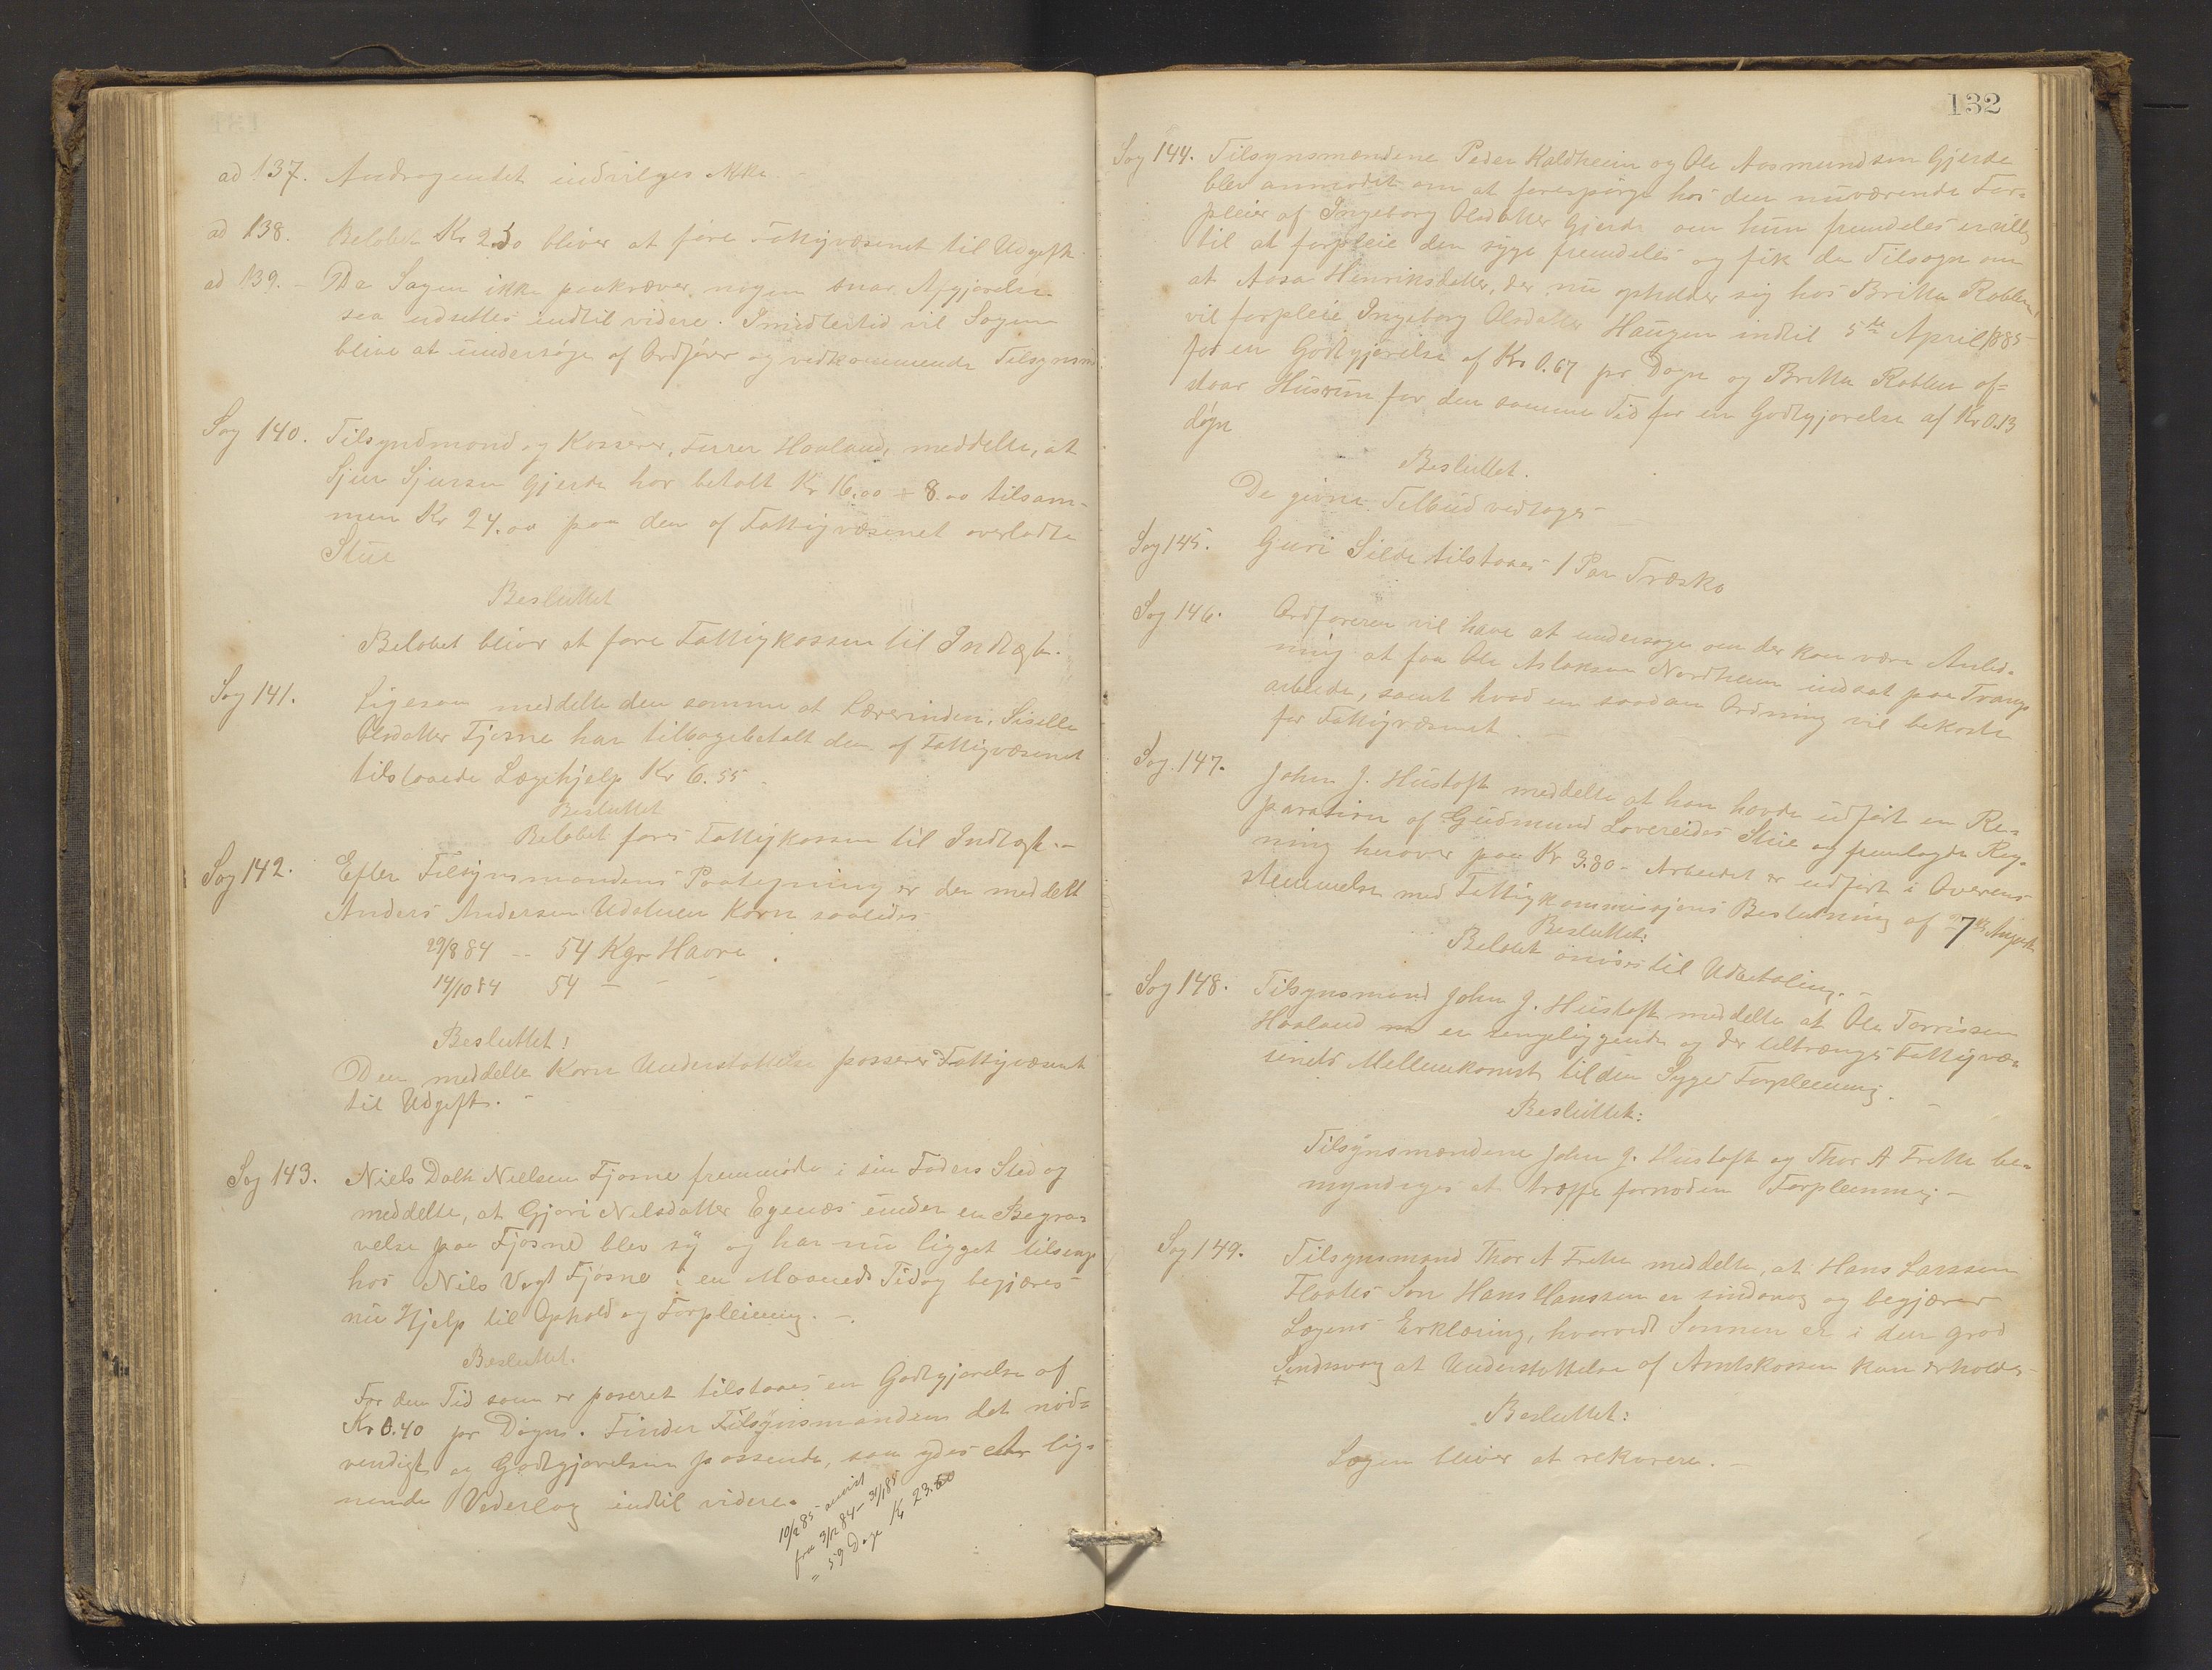 ad 137. Andragendet indvilges ikke –
ad 138. Beløbet Kr 2.50 bliver at føre Fattigvæsenet til Udgift
ad 139. – Da Sagen ikke paakræver nogen snar Afgjørelse
saa udsettes indtil videre. Imidlertid vil Sagen
blive at undersøge af Ordfører og vedkommende Tilsynsm
Sag 140. Tilsynsmand og Kasserer, Haaland, meddelte, at
Sjur Sjursen Gjerde har betalt Kr 16.00 + 8.00 tilsam-
men Kr 24.00 paa den af Fattigvæsenet overladte
Stue
Besluttet
Beløbet bliver at føre Fattigkassen til Indtægt.
Sag 141. Ligesaa meddelte den samme at Lærerinden, Siselle
Olsdatter Fjøsne har tilbagebetalt den af Fattigvæsenet
tilstaaede Lægehjelp Kr 6.55
Besluttet
Beløbet føres Fattigkassen til Indtægt. –
Sag 142. Efter Tilsynsmandens Paategning er der meddelt
Anders Andersen Korn saaledes
29/8 84 -- 54 Kgr Havre .
14/10 84 54 – – –
Besluttet!
Den meddelte Korn Understøttelse passerer Fattigvæsenet
til Udgift. –
Sag 143. Niels Dahl Nielsen Fjøsne fremmødte i sin Faders Sted og
meddelte, at Gjøri Nelsdatter Egenæs under en Begra-
velse paa Fjøsne blev syg og har nu ligget tilsengs
hos Nils Vogt Fjøsne i en Maaneds Tid og begjæres
nu Hjelp til Ophold og Forpleining. –.
Besluttet.
For den Tid som er paseret tilstaaes en Godtgjørelse af
Kr 0.40 pr Døgn. Finder Tilsynsmanden det nød=
vendigt og Godtgjørelsen passende, saa ydes lig-
nende Vederlag indtil videre.
10/2 85 anvist
fra 3/12 84 – 31/1 85
" 59 Dage Kr 23.60
132
Sag 144. Tilsynsmændene Peder Kaldheim og Ole Aasmundsen Gjerde
blev anmodet om at forespørge hos den nuværende For=
pleier af Ingeborg Olsdatter Gjerde om hun fremdeles er villig
til at forpleie den syge fremdeles og fik da Tilsagn om
at Aasa Henriksdatter, der nu opholder sig hos Britha
vil forpleie Ingeborg Olsdatter Haugen indtil 5te April 1885
for en Godtgjørelse af Kr 0.67 pr Døgn og Britha af=
staar Husrum for den samme Tid for en Godtgjørelse af Kr 0.13
døgn
Besluttet.
De givne Tilbud vedtages –
Sag 145. Guri Silde tilstaaes 1 Par Træsko
Sag 146. Ordføreren vil have at undersøge om der kan være Anled-
ning at faa Ole Aslaksen Nordheim indsat paa Tvangs
arbeide, samt hvad en saadan Ordning vil bekoste
for Fattigvæsenet . –
Sag. 147. John J. Hustoft meddelte at han havde udført en Re=
paration af Gudmund Lovereides Stue og fremlagde Reg-
ning herover paa Kr 3.80 – Arbeidet er udført i Overens
stemmelse med Fattigkommisjons Beslutning af 7de August
Besluttet:
Beløbet anvises til Udbetaling. –
Sag 148. Tilsynsmand John J. Hustoft meddelte at Ole Torrissen
Haaland er sengeliggende og der tiltrænges Fattigvæ-
senets Mellemkomst til den Syges Forpleining. –
Besluttet:
Tilsynsmændene John J. Hustoft og Thor A Frette be-
myndiges at træffe fornøden Forpleining –
Sag 149. Tilsynsmand Thor A Frette meddelte, at Hans Larssen
Flootes Søn Hans Hanssen er sindsvag og begjærer
Lægens Erklæring, hvorvidt Sønnen er i den grad
Sindsvag at Understøttelse af Amtskassen kan erholdes
Besluttet:
Lægen bliver at rekvirere. –